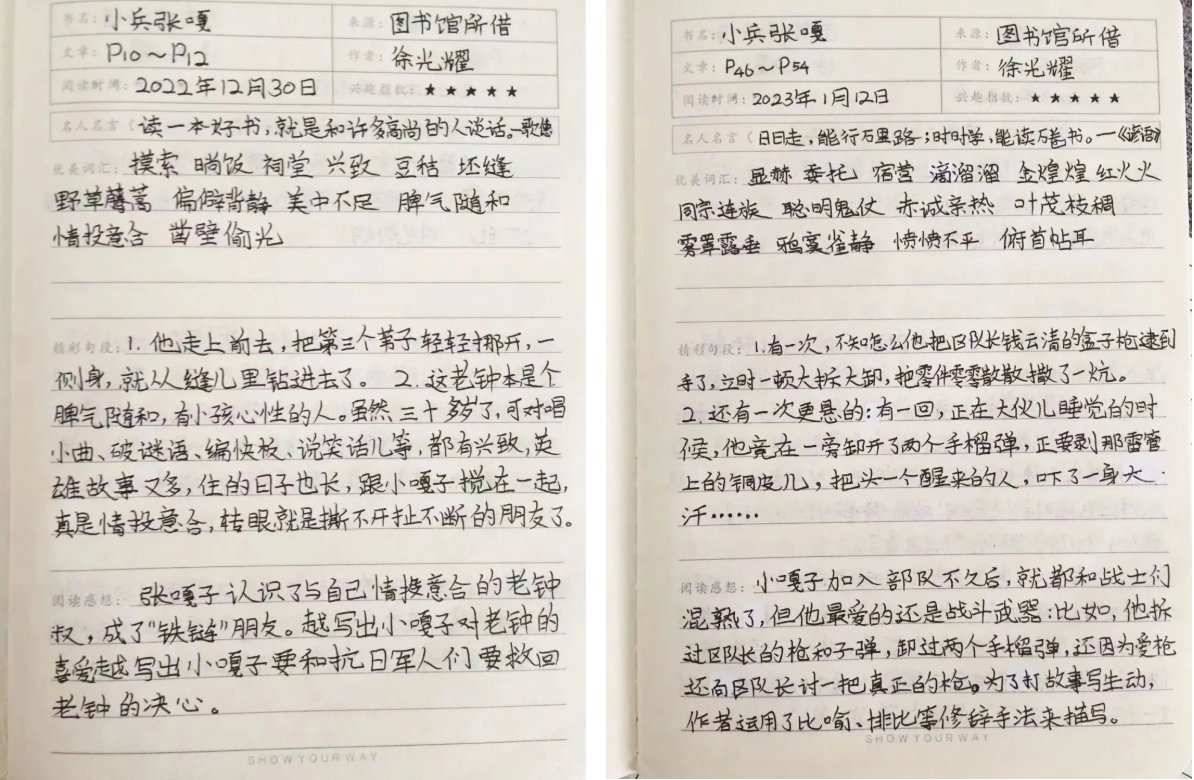 书名：小兵张嘎 来源：图书馆所借
文章：P10～P12 作者：徐光耀
阅读时间：2022年12月30日 兴趣指数：★★★★★
名人名言（读一本好书，就是和许多高尚的人谈话。—歌德
优美词汇：摸索 晌饭 祠堂 兴致 豆秸 坯缝
野草蓬蒿 偏僻背静 美中不足 脾气随和
情投意合 凿壁偷光
精彩句段：1. 他走上前去，把第三个苇子轻轻挪开，一
侧身，就从缝儿里钻进去了。 2. 这老钟本是个
脾气随和，有小孩心性的人。虽然三十多岁了，可对唱
小曲、破谜语、编快板、说笑话儿等，都有兴致，英
雄故事又多，住的日子也长，跟小嘎子搅在一起，
真是情投意合，转眼就是撕不开扯不断的朋友了。
阅读感想： 张嘎子认识了与自己情投意合的老钟
叔，成了“铁链”朋友。越写出小嘎子对老钟的
喜爱越写出小嘎子要和抗日军人们要救回
老钟的决心。
SHOW YOUR WAY
书名：小兵张嘎 来源：图书馆所借
文章：P46～P54 作者：徐光耀
阅读时间：2023年1月12日 兴趣指数：★★★★★
名人名言（日日走，能行万里路；时时学，能读万卷书。—《谚语》
优美词汇：显赫 委托 宿营 滴溜溜 金煌煌 红火火
同宗连族 聪明鬼仗 赤诚亲热 叶茂枝稠
雾罩露垂 鸦寞雀静 愤愤不平 俯首帖耳
精彩句段：1.有一次，不知怎么他把区队长钱云清的盒子枪逮到
手了，立时一顿大拆大卸，把零件零零散散撒了一炕。
2. 还有一次更悬的：有一回，正在大伙儿睡觉的时
侯，他竟在一旁卸开了两个手榴弹，正要剥那雷管
上的铜皮儿，把头一个醒来的人，吓了一身大
汗……
阅读感想： 小嘎子加入部队不久后，就都和战士们
混熟了，但他最爱的还是战斗武器：比如，他拆
过区队长的枪和子弹，卸过两个手榴弹，还因为爱枪
还向区队长讨一把真正的枪。为了打故事写生动，
作者运用了比喻、排比等修辞手法来描写。
SHOW YOUR WAY